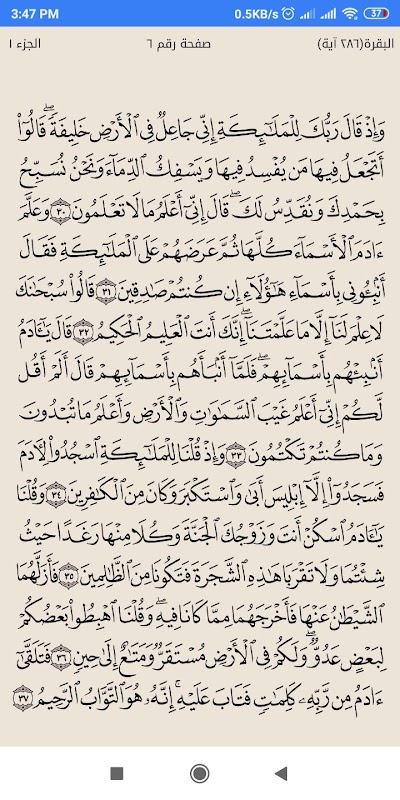 3:47 PM 0.5KB/s 37
البقرة(٢٨٦ آية) صفحة رقم ٦ الجزء ١
وَإِذْ قَالَ رَبُّكَ لِلْمَلَٰٓئِكَةِ إِنِّي جَاعِلٌ فِي ٱلْأَرْضِ خَلِيفَةً ۖ قَالُوٓا۟
أَتَجْعَلُ فِيهَا مَن يُفْسِدُ فِيهَا وَيَسْفِكُ ٱلدِّمَآءَ وَنَحْنُ نُسَبِّحُ
بِحَمْدِكَ وَنُقَدِّسُ لَكَ ۖ قَالَ إِنِّيٓ أَعْلَمُ مَا لَا تَعْلَمُونَ ٣٠ وَعَلَّمَ
ءَادَمَ ٱلْأَسْمَآءَ كُلَّهَا ثُمَّ عَرَضَهُمْ عَلَى ٱلْمَلَٰٓئِكَةِ فَقَالَ
أَنۢبِـُٔونِي بِأَسْمَآءِ هَٰٓؤُلَآءِ إِن كُنتُمْ صَٰدِقِينَ ٣١ قَالُوا۟ سُبْحَٰنَكَ
لَا عِلْمَ لَنَآ إِلَّا مَا عَلَّمْتَنَآ ۖ إِنَّكَ أَنتَ ٱلْعَلِيمُ ٱلْحَكِيمُ ٣٢ قَالَ يَٰٓـَٔادَمُ
أَنۢبِئْهُم بِأَسْمَآئِهِمْ ۖ فَلَمَّآ أَنۢبَأَهُم بِأَسْمَآئِهِمْ قَالَ أَلَمْ أَقُل
لَّكُمْ إِنِّيٓ أَعْلَمُ غَيْبَ ٱلسَّمَٰوَٰتِ وَٱلْأَرْضِ وَأَعْلَمُ مَا تُبْدُونَ
وَمَا كُنتُمْ تَكْتُمُونَ ٣٣ وَإِذْ قُلْنَا لِلْمَلَٰٓئِكَةِ ٱسْجُدُوا۟ لِـَٔادَمَ
فَسَجَدُوٓا۟ إِلَّآ إِبْلِيسَ أَبَىٰ وَٱسْتَكْبَرَ وَكَانَ مِنَ ٱلْكَٰفِرِينَ ٣٤ وَقُلْنَا
يَٰٓـَٔادَمُ ٱسْكُنْ أَنتَ وَزَوْجُكَ ٱلْجَنَّةَ وَكُلَا مِنْهَا رَغَدًا حَيْثُ
شِئْتُمَا وَلَا تَقْرَبَا هَٰذِهِ ٱلشَّجَرَةَ فَتَكُونَا مِنَ ٱلظَّٰلِمِينَ ٣٥ فَأَزَلَّهُمَا
ٱلشَّيْطَٰنُ عَنْهَا فَأَخْرَجَهُمَا مِمَّا كَانَا فِيهِ ۖ وَقُلْنَا ٱهْبِطُوا۟ بَعْضُكُمْ
لِبَعْضٍ عَدُوٌّ ۖ وَلَكُمْ فِي ٱلْأَرْضِ مُسْتَقَرٌّ وَمَتَٰعٌ إِلَىٰ حِينٍ ٣٦ فَتَلَقَّىٰٓ
ءَادَمُ مِن رَّبِّهِۦ كَلِمَٰتٍ فَتَابَ عَلَيْهِ ۚ إِنَّهُۥ هُوَ ٱلتَّوَّابُ ٱلرَّحِيمُ ٣٧